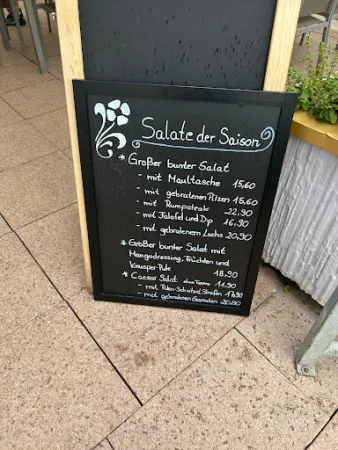 Salate der Saison
* Großer bunter Salat
- mit Maultasche 15,60
- mit gebratenen Pilzen 15,60
- mit Rumpsteak 22,90
- mit Falafel und Dip 16,90
- mit gebratenem Lachs 20,90
* Großer bunter Salat mit
Mangodressing, Früchten und
Knusper-Pute 18,90
* Caesar Salat 11,90
- mit Puten-Schnitzel Streifen 17,90
- mit gebratenen Garnelen 20,90